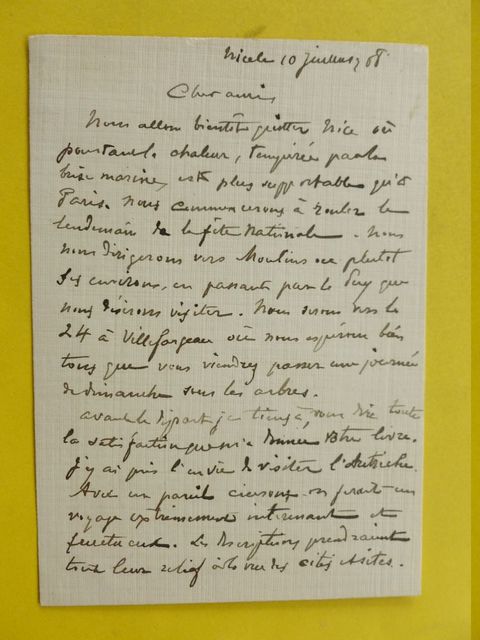 Nice le 10 juillet 08.
Cher ami,
Nous allons bientôt quitter Nice où
pourtant la chaleur, tempérée par la
brise marine, est plus supportable qu'à
Paris. Nous commencerons à rouler le
lendemain de la fête Nationale. Nous
nous dirigerons vers Moulins ou plutôt
ses environs, en passant par le Puy que
nous désirons visiter. Nous serons vers le
24 à Villefargeau où nous espérons bien
tous que vous viendrez passer une journée
de dimanche sous les arbres.
Avant le départ je tiens à vous dire toute
la satisfaction que m'a donnée votre livre.
J'y ai pris l'envie de visiter l'Autriche.
Avec un pareil cicerone on ferait un
voyage extrêmement intéressant et
fructueux. Les descriptions prendraient
tout leur relief à la vue des cités visitées.